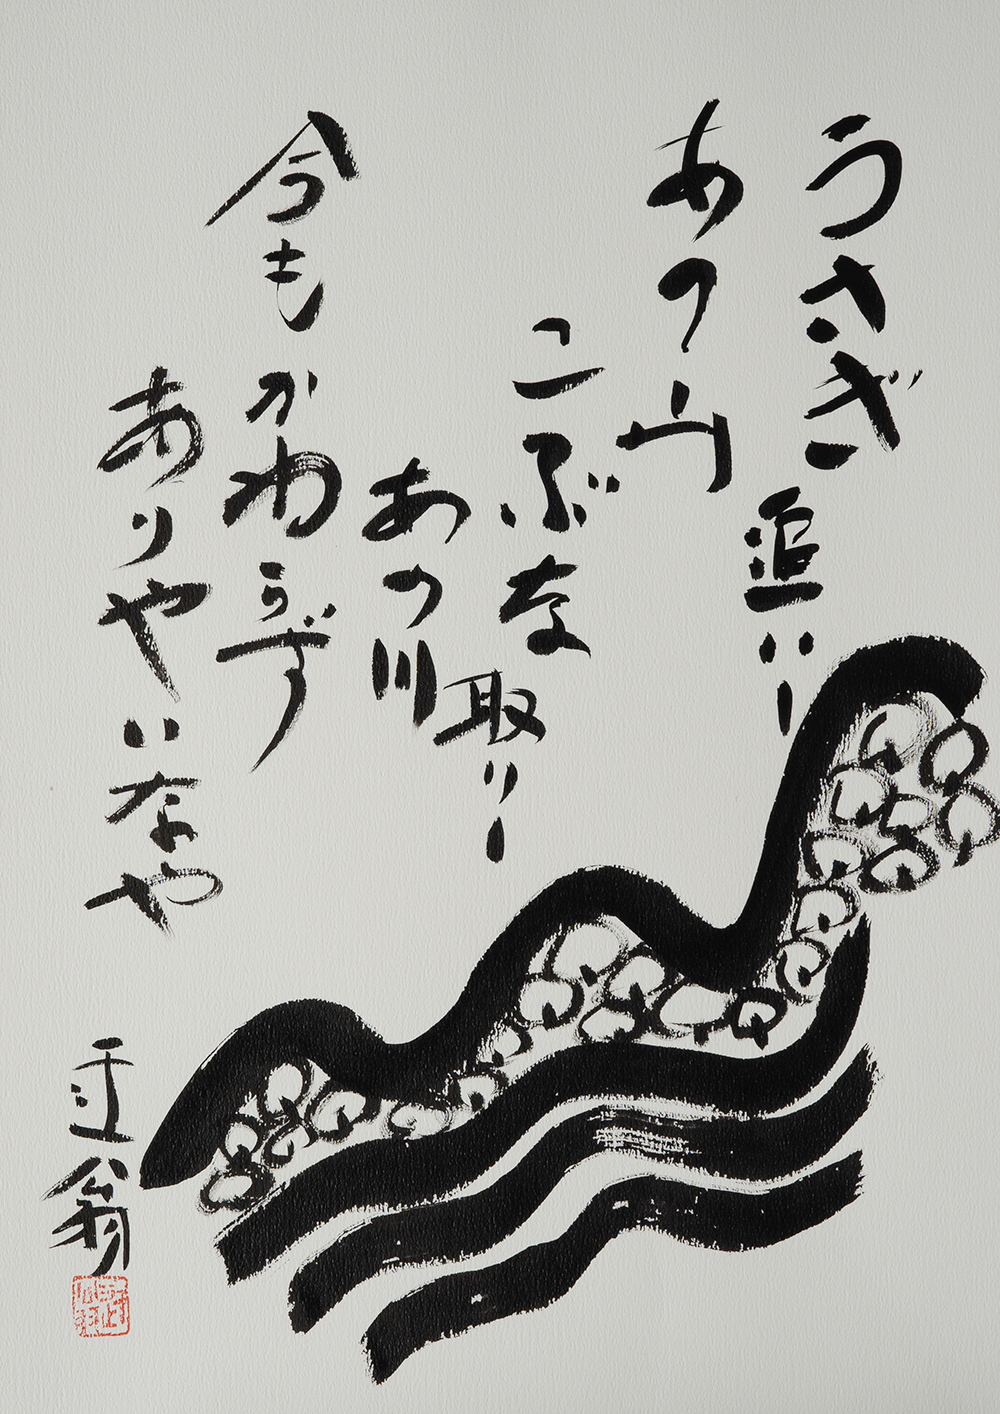 うさぎ追いし
あの山
こぶな取りし
あの川
今もかわらず
ありやいなや